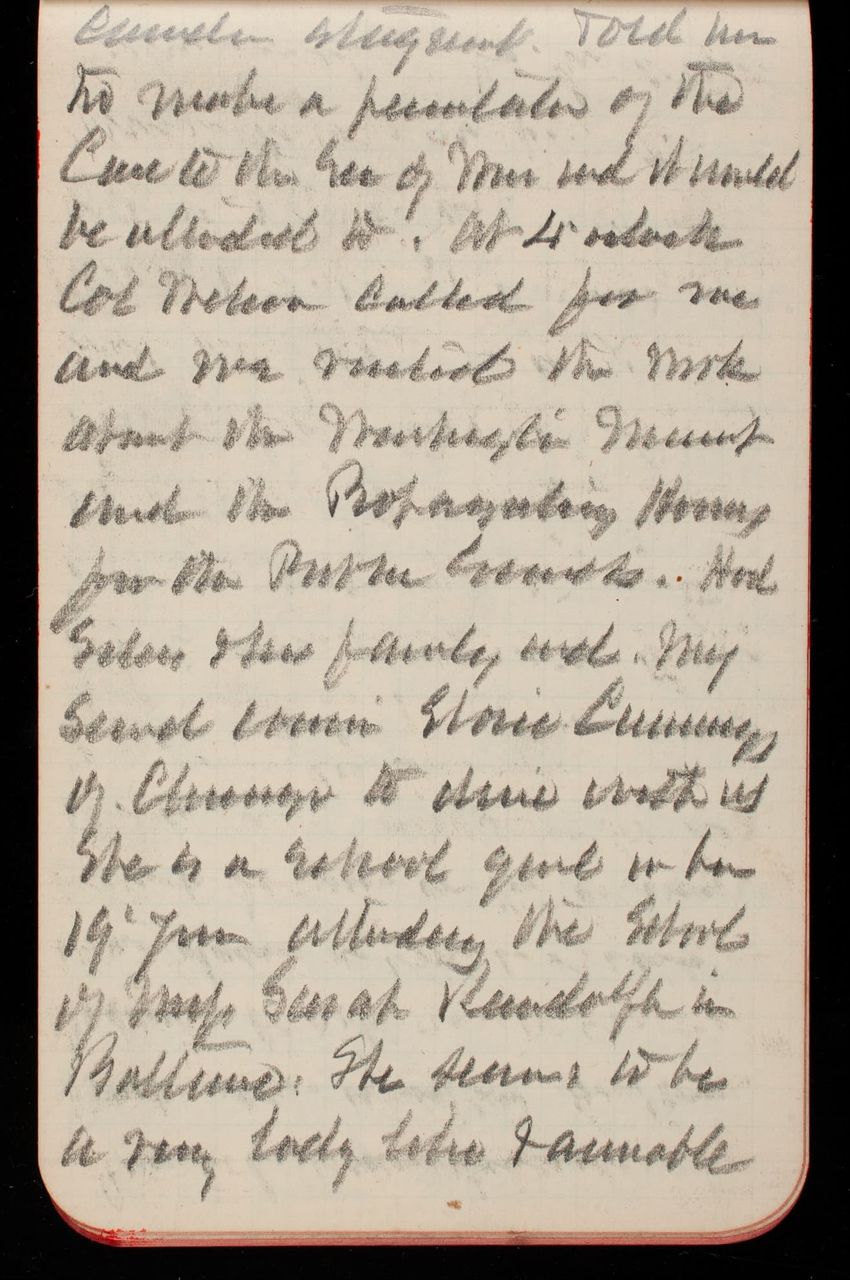 Told him
to make a
Case to the Sec of War and it would
be attended to. At 4 oclock
Col Wilson called for me
and we visited the work
about the Washington Monument
and the Propagating Houses
for the Public Grounds. Had
& his family and my
Second cousin Cummings
of Chicago to dine with us
She is a School girl in her
19' year attending the School
of Miss Sarah Randolph in
Baltimore. She seems to be
a very lady like & amiable